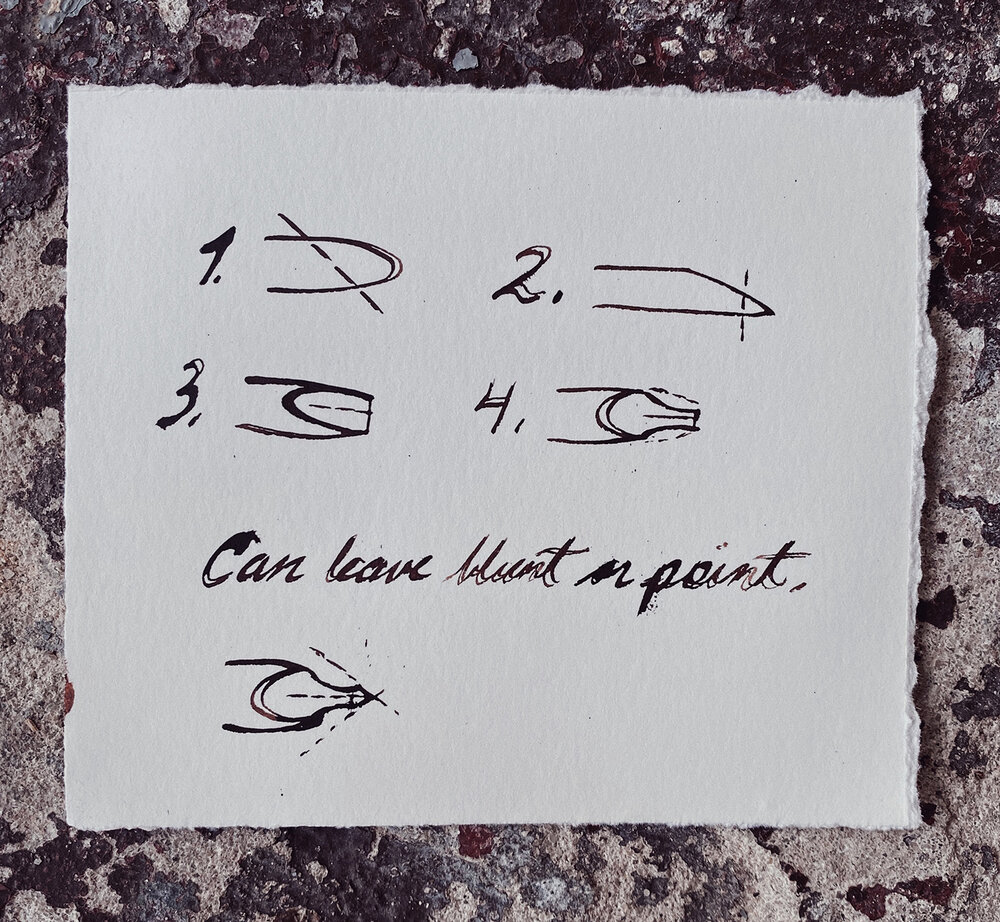 1. 2.
3. 4.
Can leave blunt or point.